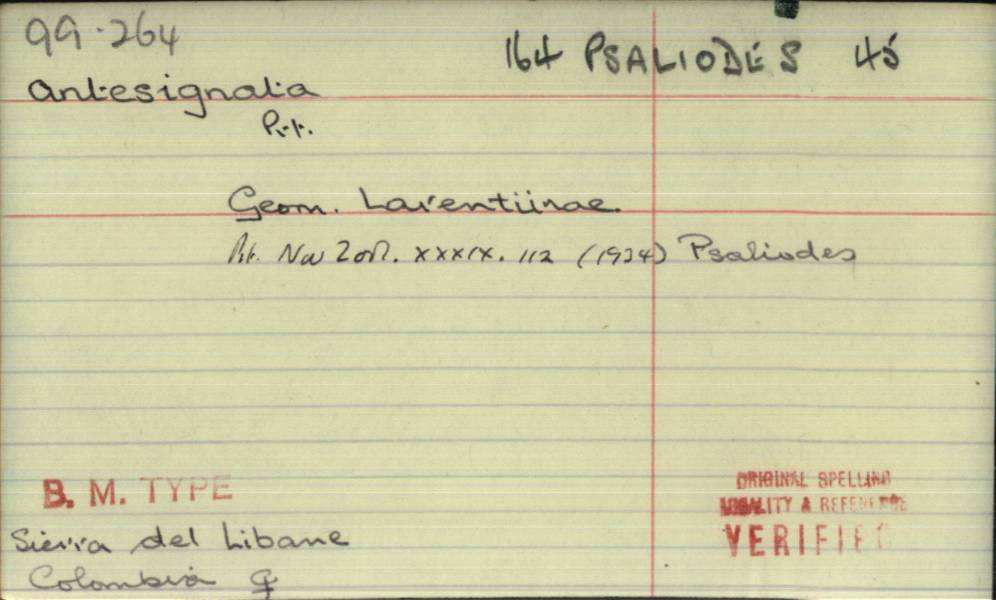 99.264
164 PSALIODES 45
antesignata
Prt.
Geom. Larentiinae.
Prt. Nov Zool. XXXIX. 112 (1934) Psaliodes
B. M. TYPE
Sierra del Libane
Colombia ♀
ORIGINAL SPELLING
LOCALITY & REFERENCE
VERIFIED